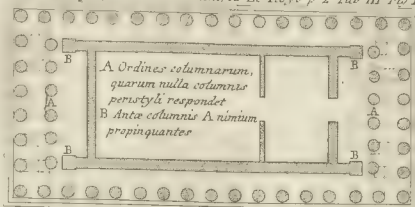 B B
A Ordines columnarum,
quarum nulla columnis
peristyli respondet
A A
B Antæ columnis A nimium
propinquantes
B B